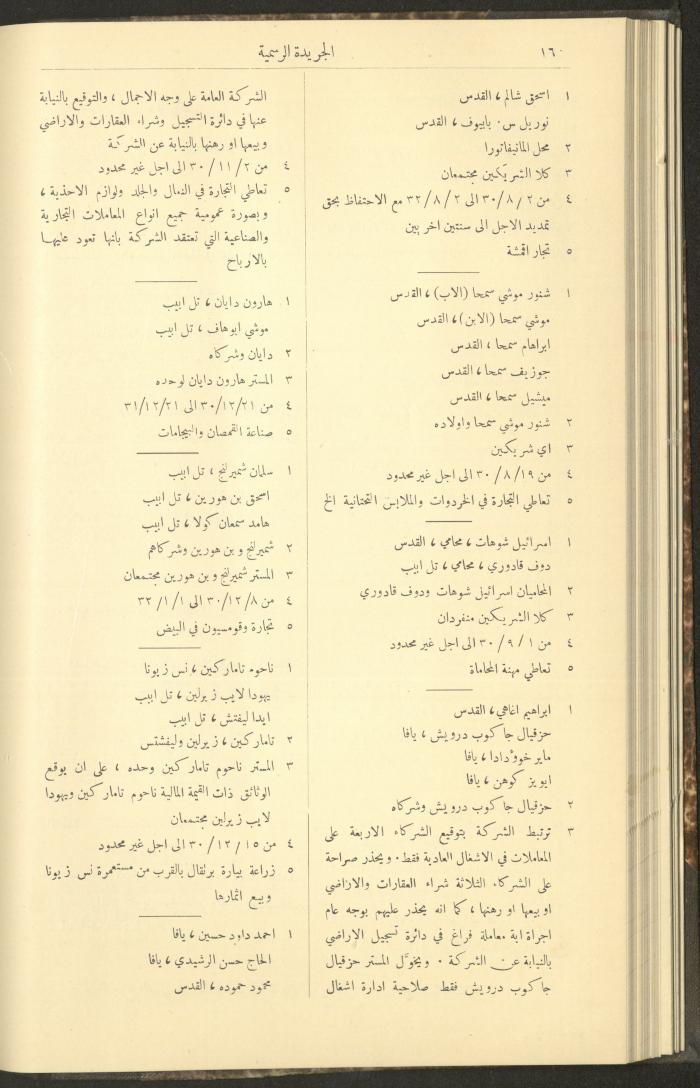 ١٦٠
الجريدة الرسمية
١ اسحق شالم، القدس
نوريل س. بابيوف، القدس
٢ محل المانيفاتورا
٣ كلا الشريكين مجتمعان
٤ من ٢/٨/٣٠ الى ٢/٨/٣٢ مع الاحتفاظ بحق
تمديد الاجل الى سنتين اخريين
٥ تجار اقمشة
١ شنور موشي سمحا (الاب)، القدس
موشي سمحا (الابن)، القدس
ابراهام سمحا، القدس
جوزيف سمحا، القدس
ميشيل سمحا، القدس
٢ شنور موشي سمحا واولاده
٣ اي شريكين
٤ من ١٩/٨/٣٠ الى اجل غير محدود
٥ تعاطي التجارة في الخردوات والملابس التحتانية الخ
١ اسرائيل شوهات، محامي، القدس
دوف قادوري، محامي، تل ابيب
٢ المحاميان اسرائيل شوهات ودوف قادوري
٣ كلا الشريكين منفردان
٤ من ١/٩/٣٠ الى اجل غير محدود
٥ تعاطي مهنة المحاماة
١ ابراهيم اغاهي، القدس
حزقيال جاكوب درويش، يافا
ماير خوؤدادا، يافا
ابويز كوهن، يافا
٢ حزقيال جاكوب درويش وشركاه
٣ ترتبط الشركة بتوقيع الشركاء الاربعة على
المعاملات في الاشغال العادية فقط. ويحذر صراحة
على الشركاء الثلاثة شراء العقارات والاراضي
او بيعها او رهنها، كما انه يحذر عليهم بوجه عام
اجراة اية معاملة فراغ في دائرة تسجيل الاراضي
بالنيابة عن الشركة. ويخوّل المستر حزقيال
جاكوب درويش فقط صلاحية ادارة اشغال
الشركة العامة على وجه الاجمال، والتوقيع بالنيابة
عنها في دائرة التسجيل وشراء العقارات والاراضي
وبيعها او رهنها بالنيابة عن الشركة
٤ من ٢/١١/٣٠ الى اجل غير محدود
٥ تعاطي التجارة في النعال والجلد ولوازم الاحذية،
وبصورة عمومية جميع انواع المعاملات التجارية
والصناعية التي تعتقد الشركة بانها تعود عليها
بالارباح
١ هارون دايان، تل ابيب
موشي ابوهاف، تل ابيب
٢ دايان وشركاه
٣ المستر هارون دايان لوحده
٤ من ٢١/١٢/٣٠ الى ٢١/١٢/٣١
٥ صناعة القمصان والبيجامات
١ سلمان شميرلنج، تل ابيب
اسحق بن هورين، تل ابيب
هامد سمعان كولا، تل ابيب
٢ شميرلنج وبن هورين وشركاهم
٣ المستر شميرلنج وبن هورين مجتمعان
٤ من ٨/١٢/٣٠ الى ١/١/٣٢
٥ تجارة وقومسيون في البيض
١ ناحوم تاماركين، نس زيونا
يهودا لايب زيرلين، تل ابيب
ايدا ليفتش، تل ابيب
٢ تاماركين، زيرلين وليفشتس
٣ المستر ناحوم تاماركين وحده، على ان يوقع
الوثائق ذات القيمة المالية ناحوم تاماركين ويهودا
لايب زيرلين مجتمعان
٤ من ١٥/١٢/٣٠ الى اجل غير محدود
٥ زراعة بيارة برتقال بالقرب من مستعمرة نس زيونا
وبيع اثمارها
١ احمد داود حسين، يافا
الحاج حسن الرشيدي، يافا
محمود حموده، القدس